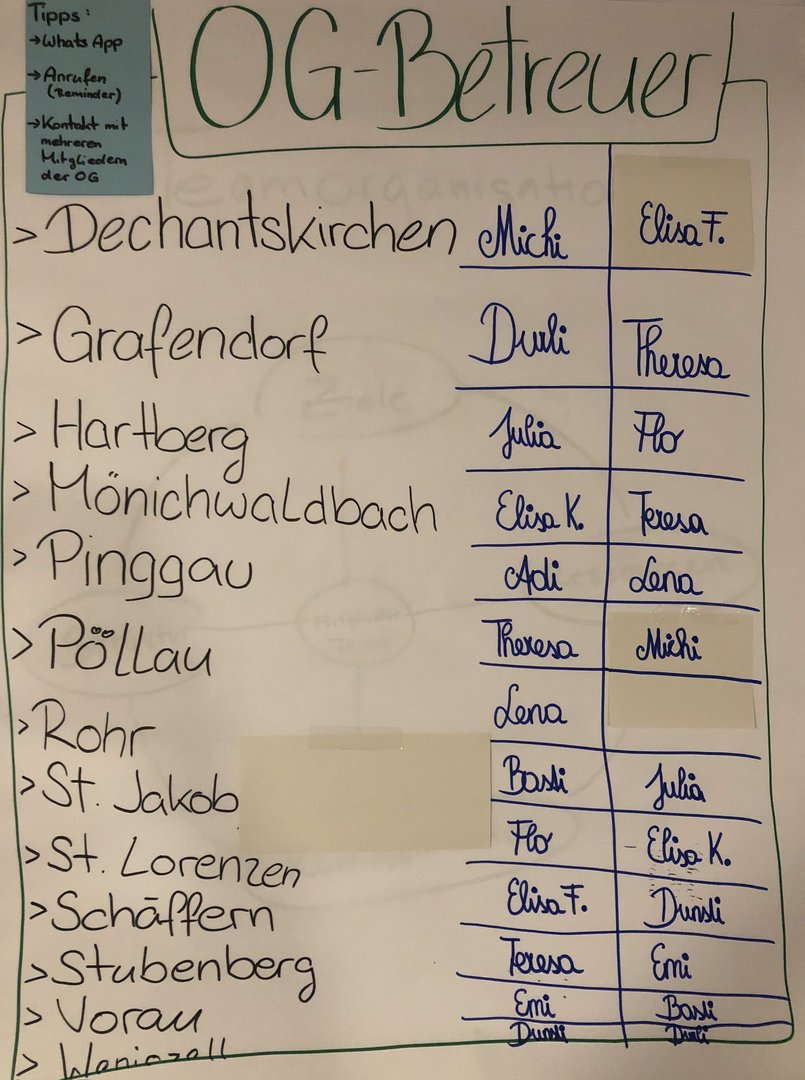 Tipps:
→WhatsApp
→Anrufen
(Reminder)
→Kontakt mit
mehreren
Mitgliedern
der OG
OG-Betreuer
> Dechantskirchen Michi Elisa F.
> Grafendorf Durli Theresa
> Hartberg Julia Flo
> Mönichwaldbach Elisa K. Teresa
> Pinggau Adi Lena
> Pöllau Theresa Michi
> Rohr Lena
> St. Jakob Basti Julia
> St. Lorenzen Flo - Elisa K.
> Schäffern Elisa F. Dunsti
> Stubenberg Teresa Emi
> Vorau Emi Basti
> Wenigzell Dunsti Durli